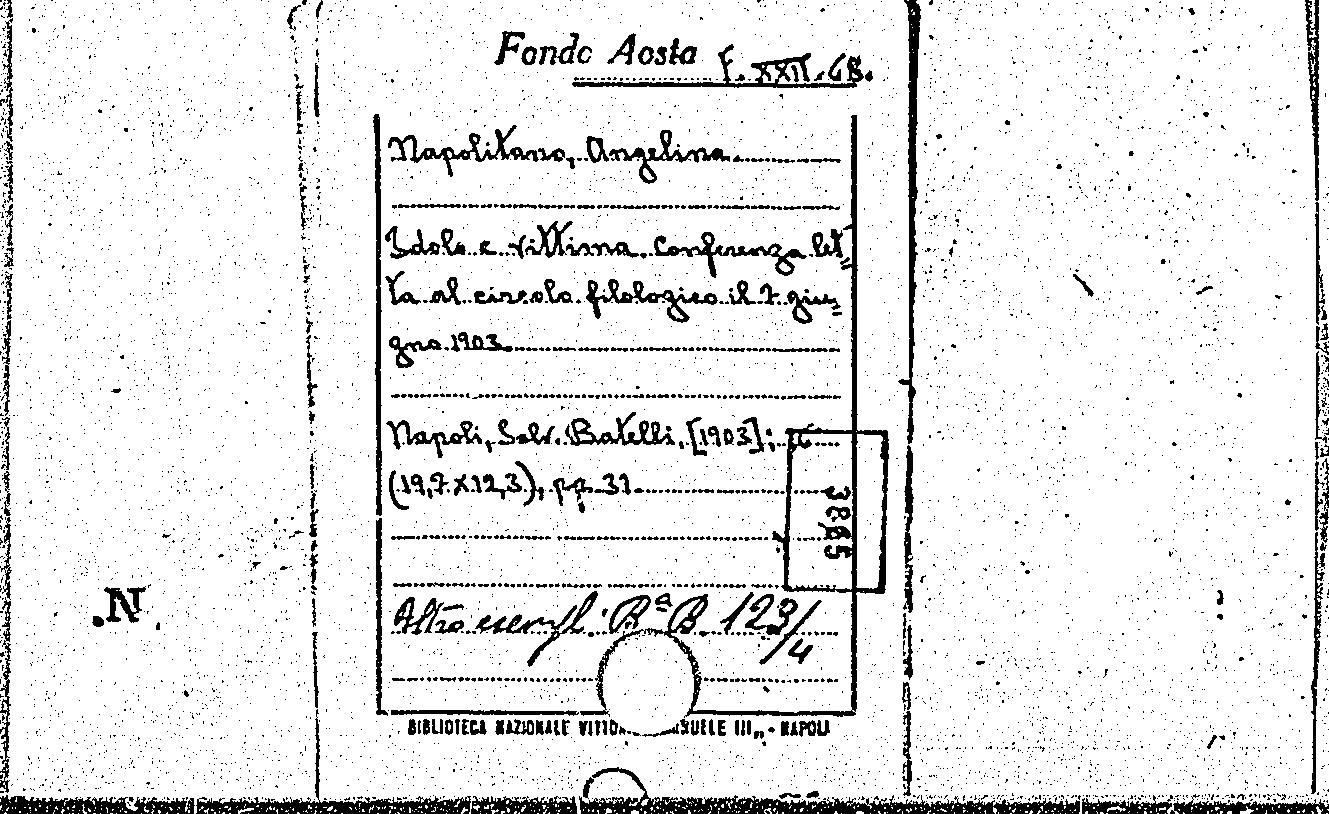 Fondo Aosta F. XXII. 68.
Napolitano, Angelina.
Idolo e vittima. Conferenza let=
ta al circolo filologico il 7 giu=
gno 1903.
Napoli, Salv. Batelli, [1903]; 16
(19,7 x 12,3), pp. 31.
3865
Altro esempl. Bª B. 123/4
BIBLIOTECA NAZIONALE III„ - NAPOLI
.N